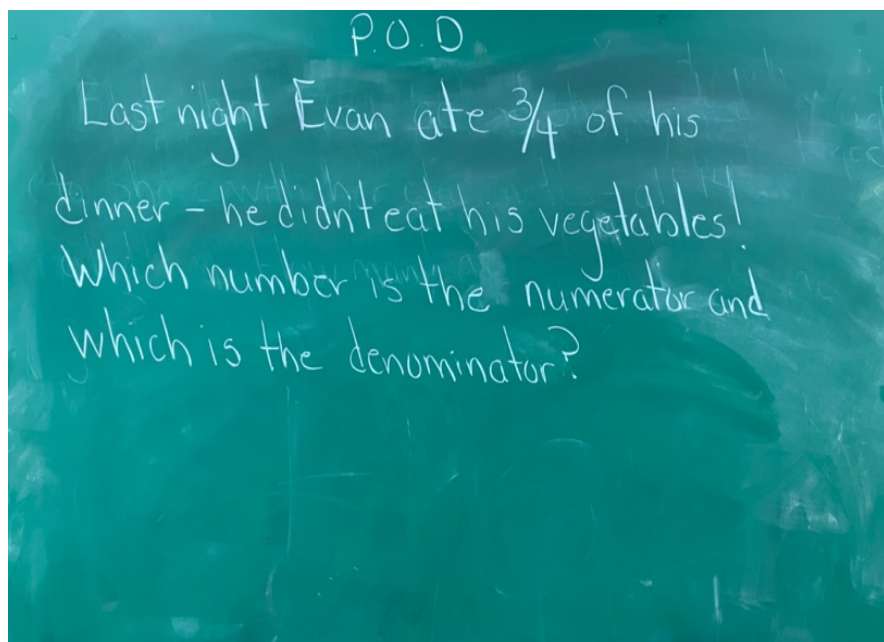 P.O.D.
Last night Evan ate 3/4 of his
dinner - he didn't eat his vegetables!
Which number is the numerator and
which is the denominator?